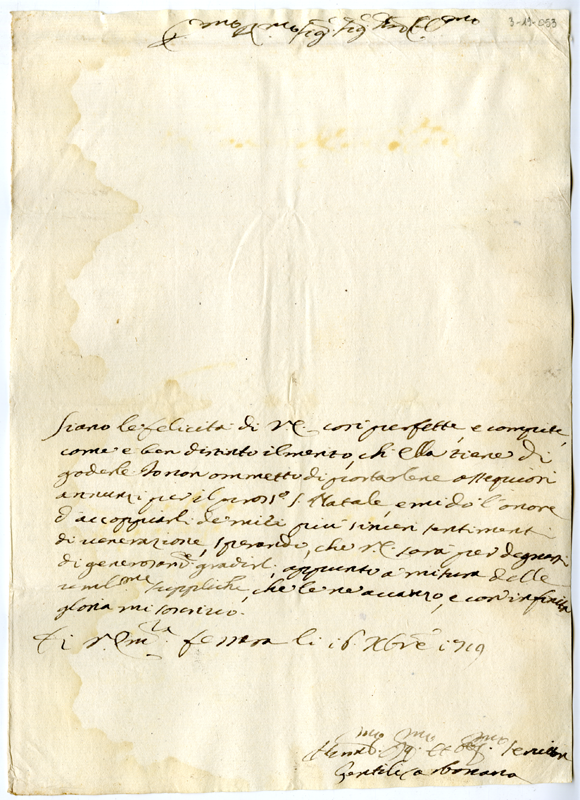 3-19-053
E.mo R.mo Sig. Sig. Pron. Col.mo
Siano le felicità di V.E. così perfette, e compite,
come è ben distinto il merito, ch'ella tiene di
goderle. Io non ommetto di portarlene ossequiosi
annunzi per il pross.o S. Natale, e mi dò l'onore
d'accoppiarli de miei più sinceri sentimenti
di venerazione, sperando, che V.E. sarà per degnarsi
di generosam.e gradirli appunto a misura delle
umil.me suppliche, che le ne avanzo, e con infinita
gloria mi soscrivo.
Di V. Em.za Ferrara li 16 Xbre 1719
mo mo mo
Gentile